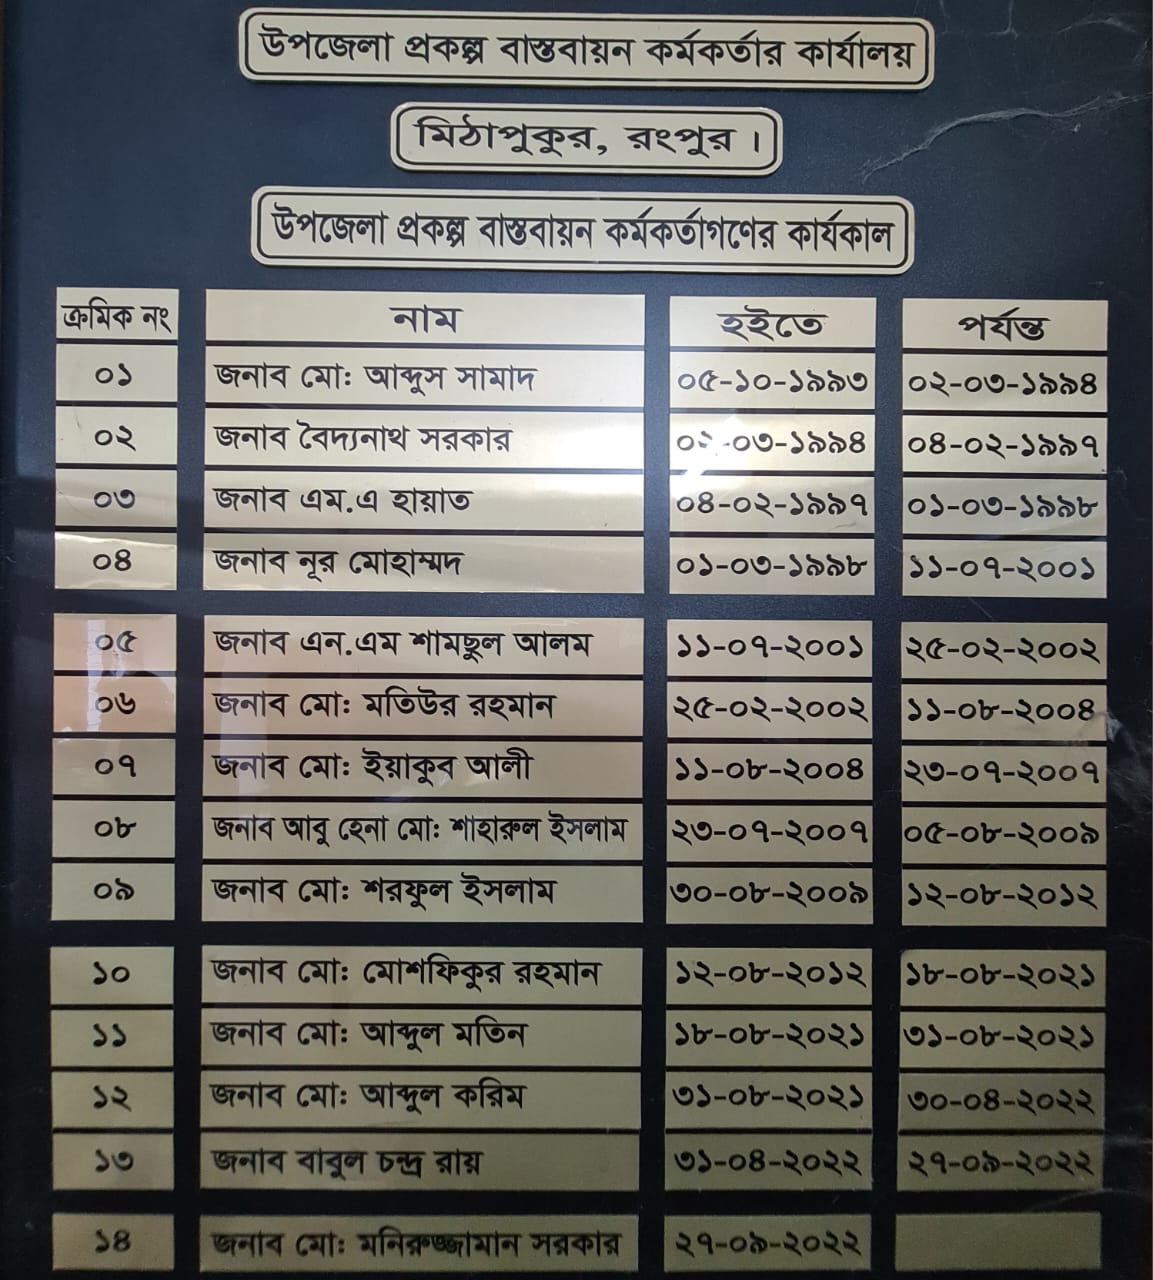 উপজেলা প্রকল্প বাস্তবায়ন কর্মকর্তার কার্যালয়
মিঠাপুকুর, রংপুর ।
উপজেলা প্রকল্প বাস্তবায়ন কর্মকর্তাগণের কার্যকাল
ক্রমিক নং নাম হইতে পর্যন্ত
০১ জনাব মো: আব্দুস সামাদ ০৫-১০-১৯৯৩ ০২-০৩-১৯৯৪
০২ জনাব বৈদ্যনাথ সরকার ০২-০৩-১৯৯৪ ০৪-০২-১৯৯৭
০৩ জনাব এম.এ হায়াত ০৪-০২-১৯৯৭ ০১-০৩-১৯৯৮
০৪ জনাব নূর মোহাম্মদ ০১-০৩-১৯৯৮ ১১-০৭-২০০১
০৫ জনাব এন.এম শামছুল আলম ১১-০৭-২০০১ ২৫-০২-২০০২
০৬ জনাব মো: মতিউর রহমান ২৫-০২-২০০২ ১১-০৮-২০০৪
০৭ জনাব মো: ইয়াকুব আলী ১১-০৮-২০০৪ ২৩-০৭-২০০৭
০৮ জনাব আবু হেনা মো: শাহারুল ইসলাম ২৩-০৭-২০০৭ ০৫-০৮-২০০৯
০৯ জনাব মো: শরফুল ইসলাম ৩০-০৮-২০০৯ ১২-০৮-২০১২
১০ জনাব মো: মোশফিকুর রহমান ১২-০৮-২০১২ ১৮-০৮-২০২১
১১ জনাব মো: আব্দুল মতিন ১৮-০৮-২০২১ ৩১-০৮-২০২১
১২ জনাব মো: আব্দুল করিম ৩১-০৮-২০২১ ৩০-০৪-২০২২
১৩ জনাব বাবুল চন্দ্র রায় ৩১-০৪-২০২২ ২৭-০৯-২০২২
১৪ জনাব মো: মনিরুজ্জামান সরকার ২৭-০৯-২০২২